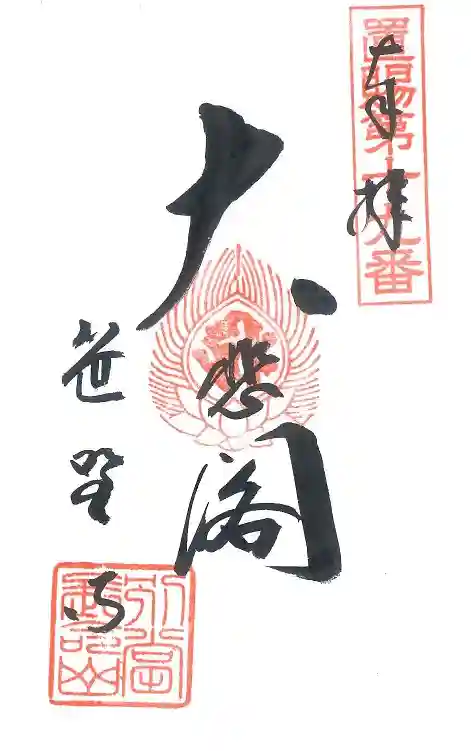 奉拝
置賜第十九番
大悲閣
笹野寺